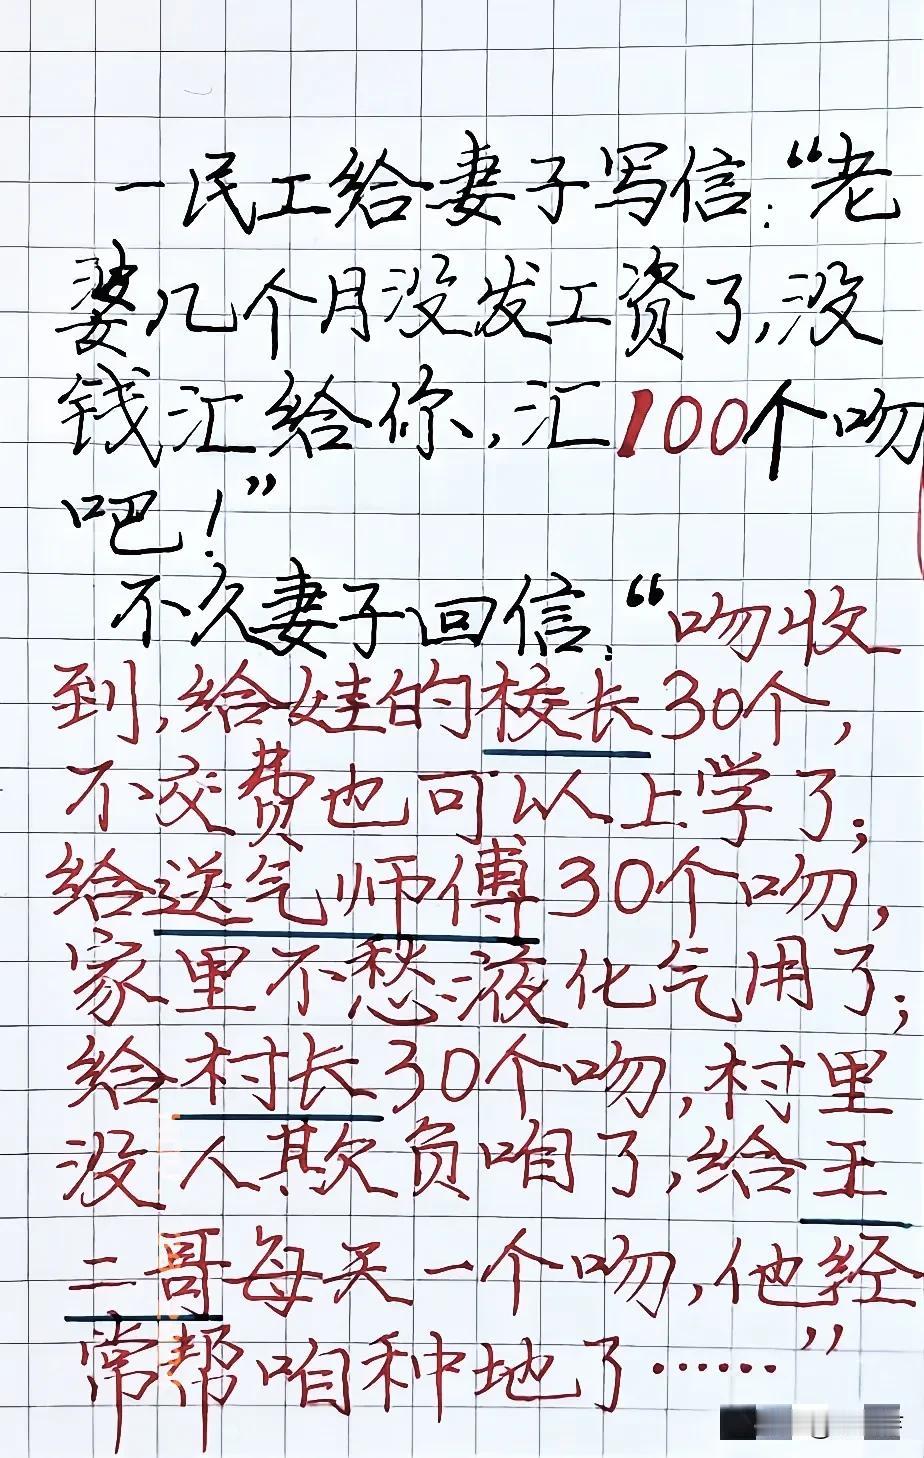 一民工给妻子写信:“老
婆几个月没发工资了,没
钱汇给你,汇100个吻
吧!”
不久妻子回信:“吻收
到,给娃的校长30个,
不交费也可以上学了;
给送气师傅30个吻,
家里不愁液化气用了;
给村长30个吻,村里
没人欺负咱了,给王
二哥每天一个吻,他经
常帮咱种地了……”